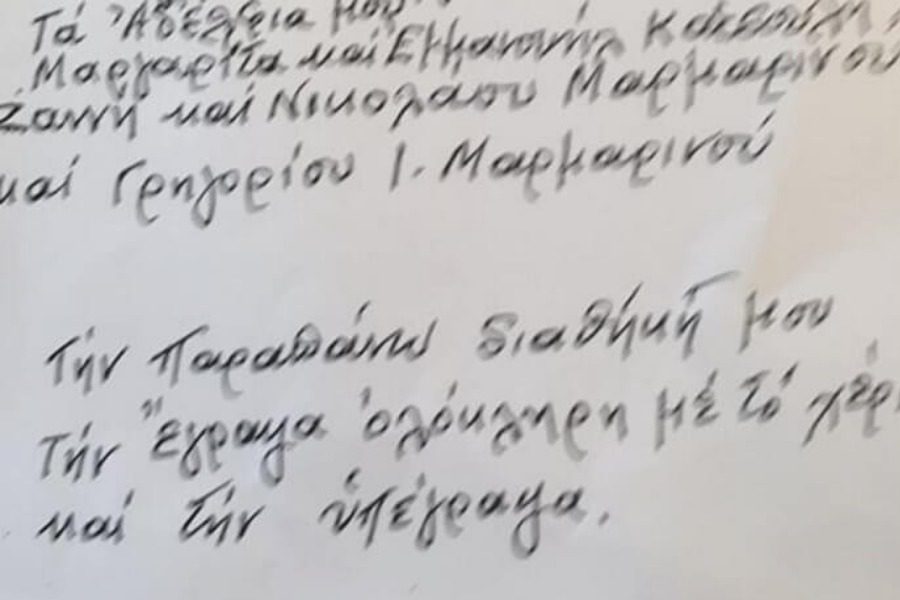 Τά Ἀδέλφια μου
Μαργαρίτα καί Ἐμμανουήλ
Ζαννή καί Νικολάου Μαρμαρινού
καί Γρηγορίου Ι. Μαρμαρινού
Τήν παραπάνω διαθήκη μου
Τήν ἔγραψα ὁλόκληρη μέ τό χέρι
καί τήν ὑπέγραψα.